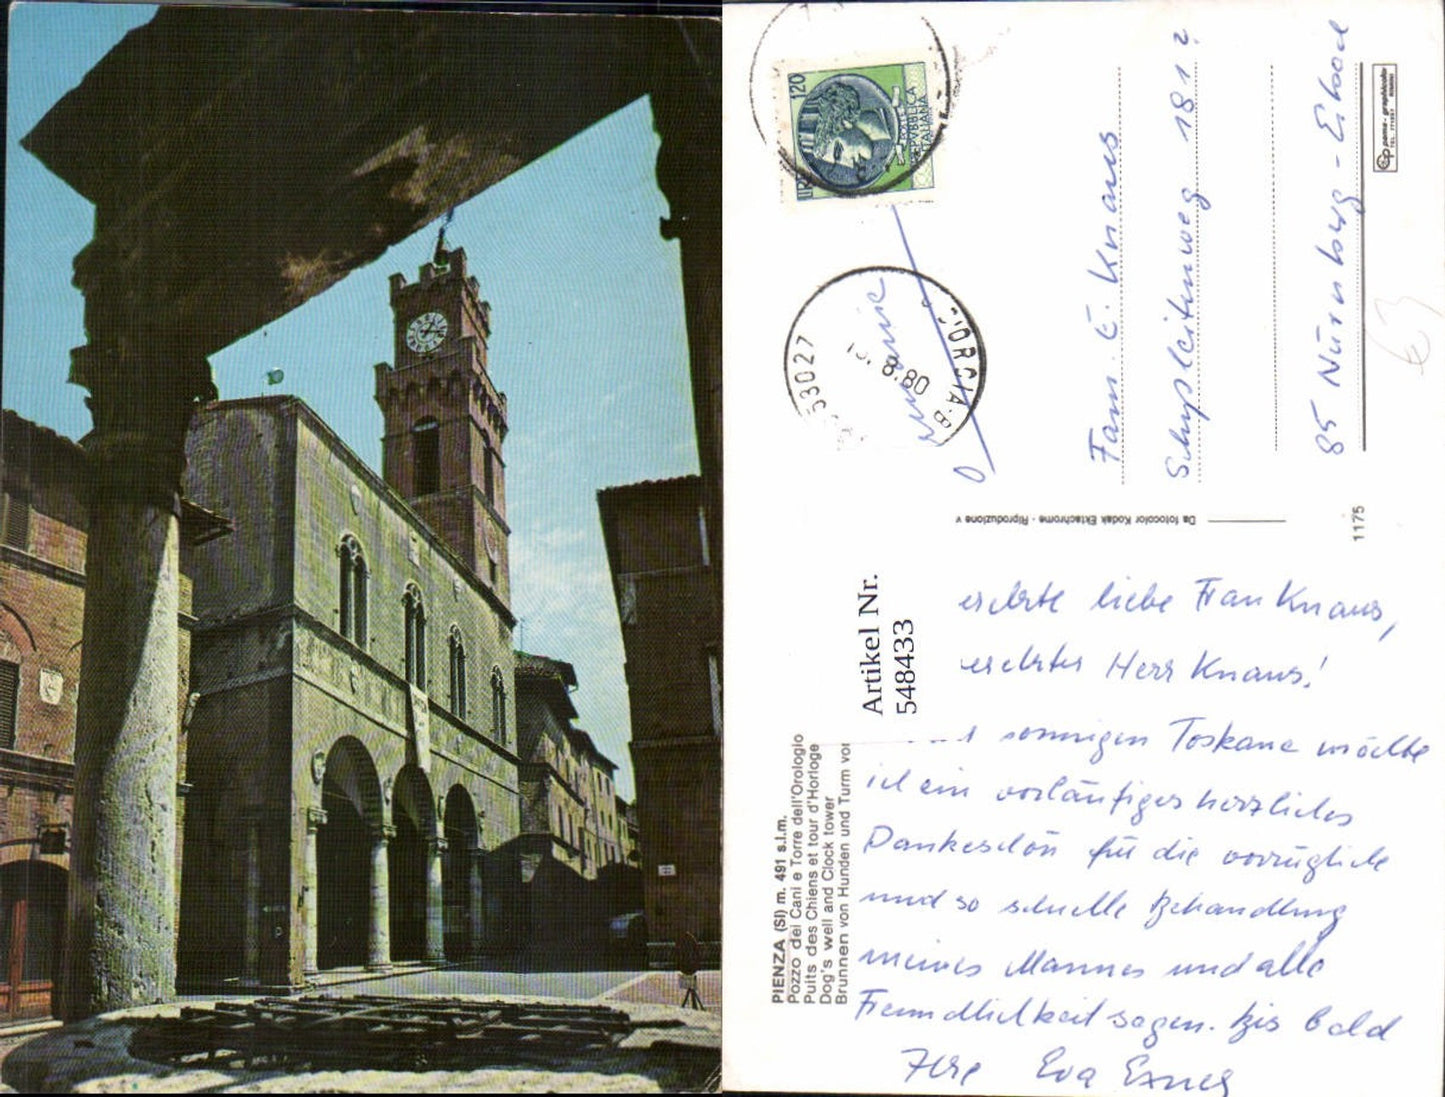 120
LIRE
POSTE
REPVBBLICA
ITALIANA
53027
D'ORCIA · B
8.80
Fam. E. Knaus
181 2
85 Nürnberg - Eibach
1175
Da fotocolor Kodak Ektachrome - Riproduzione v
Artikel Nr.
548433
PIENZA (SI) m. 491 s.l.m.
Pozzo dei Cani e Torre dell'Orologio
Puits des Chiens et tour d'Horloge
Dog's well and Clock tower
Brunnen von Hunden und Turm von
erehrte liebe Frau Knaus,
erehrter Herr Knaus!
sonnigen Toskana möchte
ich ein vorläufiges herzliches
Dankeschön für die vorzügliche
und so schnelle Behandlung
meines Mannes und alle
Freundlichkeit sagen. Bis bald
Ihre Eva Exner